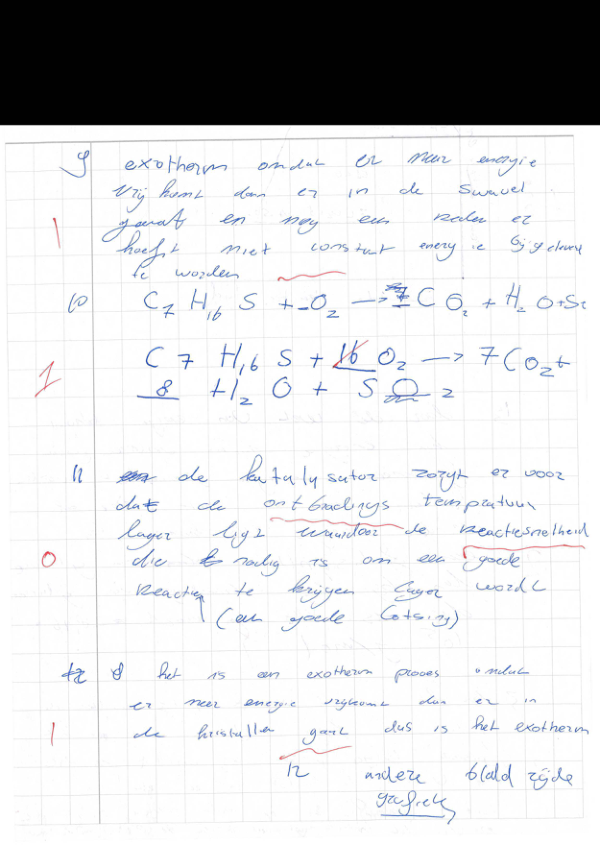 9 exotherm omdat er meer energie
vrij komt dan er in de swavel
gaat en nog een reden er
1 hoeft niet constant energie bijgeleverd
te worden
10 C7 H16 S + O2 → 7 C O2 + H2 O + S
C 7 H16 S + 16 O2 → 7 CO2 +
1 8 H2 O + S O 2
11 de katalysator zorgt er voor
dat de ontbradings tempratuur
lager ligt waardoor de reactiesnelheid
0 die nodig is om een goede
reactie te krijgen lager wordt
(een goede botsing)
8 het is een exotherm proces omdat
er meer energie vrijkomt dan er in
1 de kristallen gaat dus is het exotherm
12 andere blad zijde
grafiek